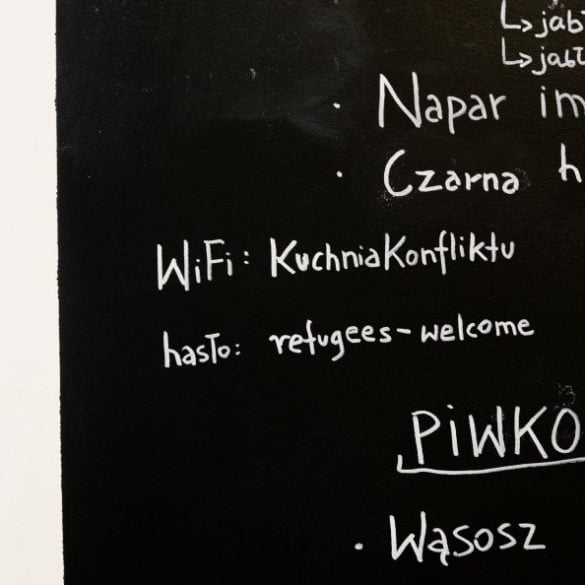 Napar
Czarna
WiFi: KuchniaKonfliktu
hasło: refugees-welcome
PiWKO
Wąsosz